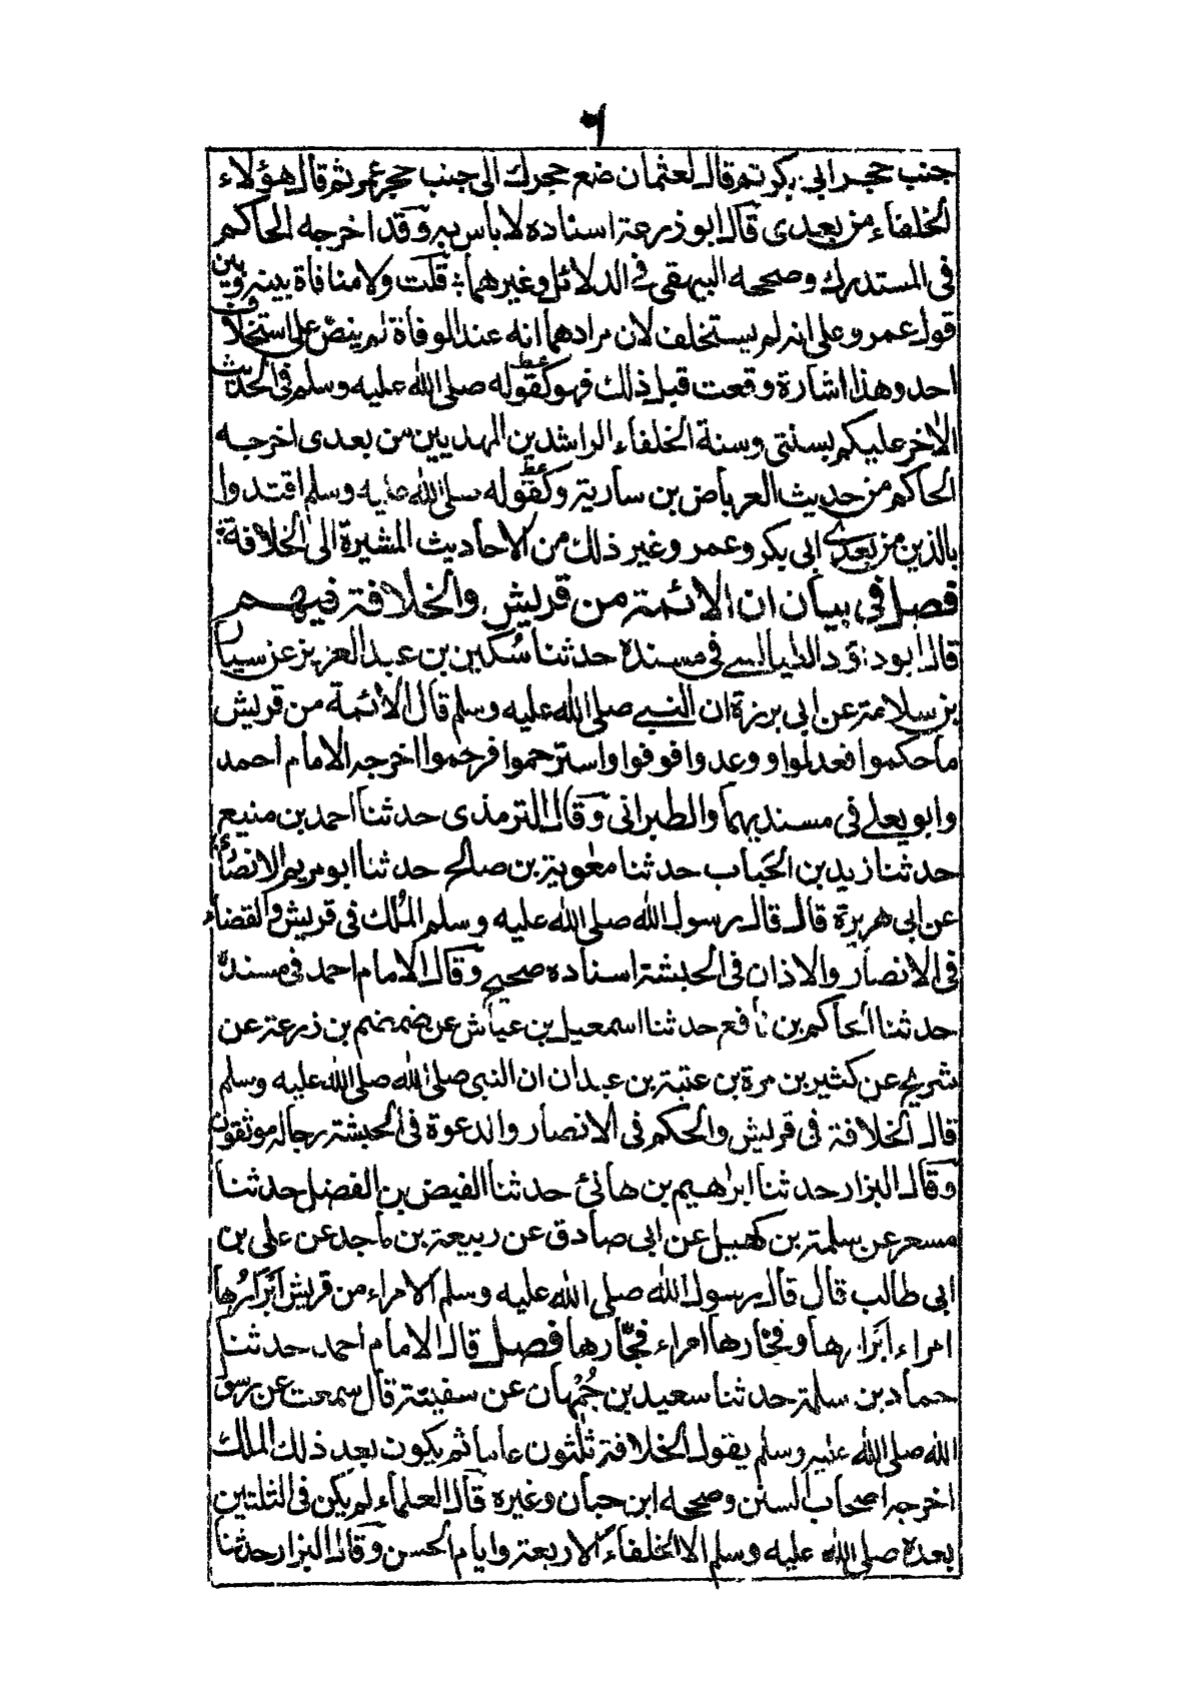 ٦
جنب حجر ابي بكر ثم قال لعثمان ضع حجرك الى جنب حجر عمر ثم قال هؤلاء
الخلفاء من بعدى قال ابو ذرعة اسناده لا باس به وقد اخرجه الحاكم
فى المستدرك وصححه البيهقى فى الدلائل وغيرهما قلت ولا منافاة بينه وبين
قول عمر وعلى انه لم يستخلف لان مرادهما انه عند الوفاة لم ينص على استخلاف
احد وهذا اشارة وقعت قبل ذلك فهو كقوله صلى الله عليه وسلم فى الحديث
الاخر عليكم بسنتى وسنة الخلفاء الراشدين المهديين من بعدى اخرجه
الحاكم من حديث العرباض بن سارية وكقوله صلى الله عليه وسلم اقتدوا
بالذين من بعدى ابى بكر وعمر وغير ذلك من الاحاديث المشيرة الى الخلافة
فصل في بيان ان الائمة من قريش والخلافة فيهم
قال ابو داؤد الطيالسى فى مسنده حدثنا سُكين بن عبد العزيز عن سيار
بن سلامة عن ابى برزة ان النبى صلى الله عليه وسلم قال الائمة من قريش
ما حكموا فعدلوا ووعدوا فوفوا واسترحموا فرحموا اخرجه الامام احمد
وابو يعلى فى مسنديهما والطبرانى وقال الترمذى حدثنا احمد بن منيع
حدثنا زيد بن الحَباب حدثنا معوية بن صالح حدثنا ابو مريم الانصارى
عن ابى هريرة قال قال رسول الله صلى الله عليه وسلم المُلك فى قريش والقضاء
فى الانصار والاذان فى الحبشة اسناده صحيح وقال الامام احمد فى مسنده
حدثنا الحاكم بن نافع حدثنا اسمعيل بن عياش عن ضمضم بن زرعة عن
شريح عن كثير بن مرة بن عتبة بن عبدان ان النبى صلى الله صلى الله عليه وسلم
قال الخلافة فى قريش والحكم فى الانصار والدعوة فى الحبشة رجاله موثقون
وقال البزار حدثنا ابرٰهيم بن هانئ حدثنا الفيض بن الفضل حدثنا
مسعر عن سلمة بن كهيل عن ابى صادق عن ربيعة بن ماجد عن على بن
ابى طالب قال قال رسول الله صلى الله عليه وسلم الامراء من قريش اَبرارُها
امراء اَبرارها وفجّارها امراء فجّارها فصل قال الامام احمد حدثنا
حماد بن سلمة حدثنا سعيد بن جُمْهان عن سفينة قال سمعت عن رسول
الله صلى الله عليه وسلم يقول الخلافة ثلثون عاما ثم يكون بعد ذلك الملك
اخرجه اصحاب السنن وصححه ابن حبان وغيره قال العلماء لم يكن فى الثلثين
بعده صلى الله عليه وسلم الا الخلفاء الاربعة وايام الحسن وقال البزار حدثنا